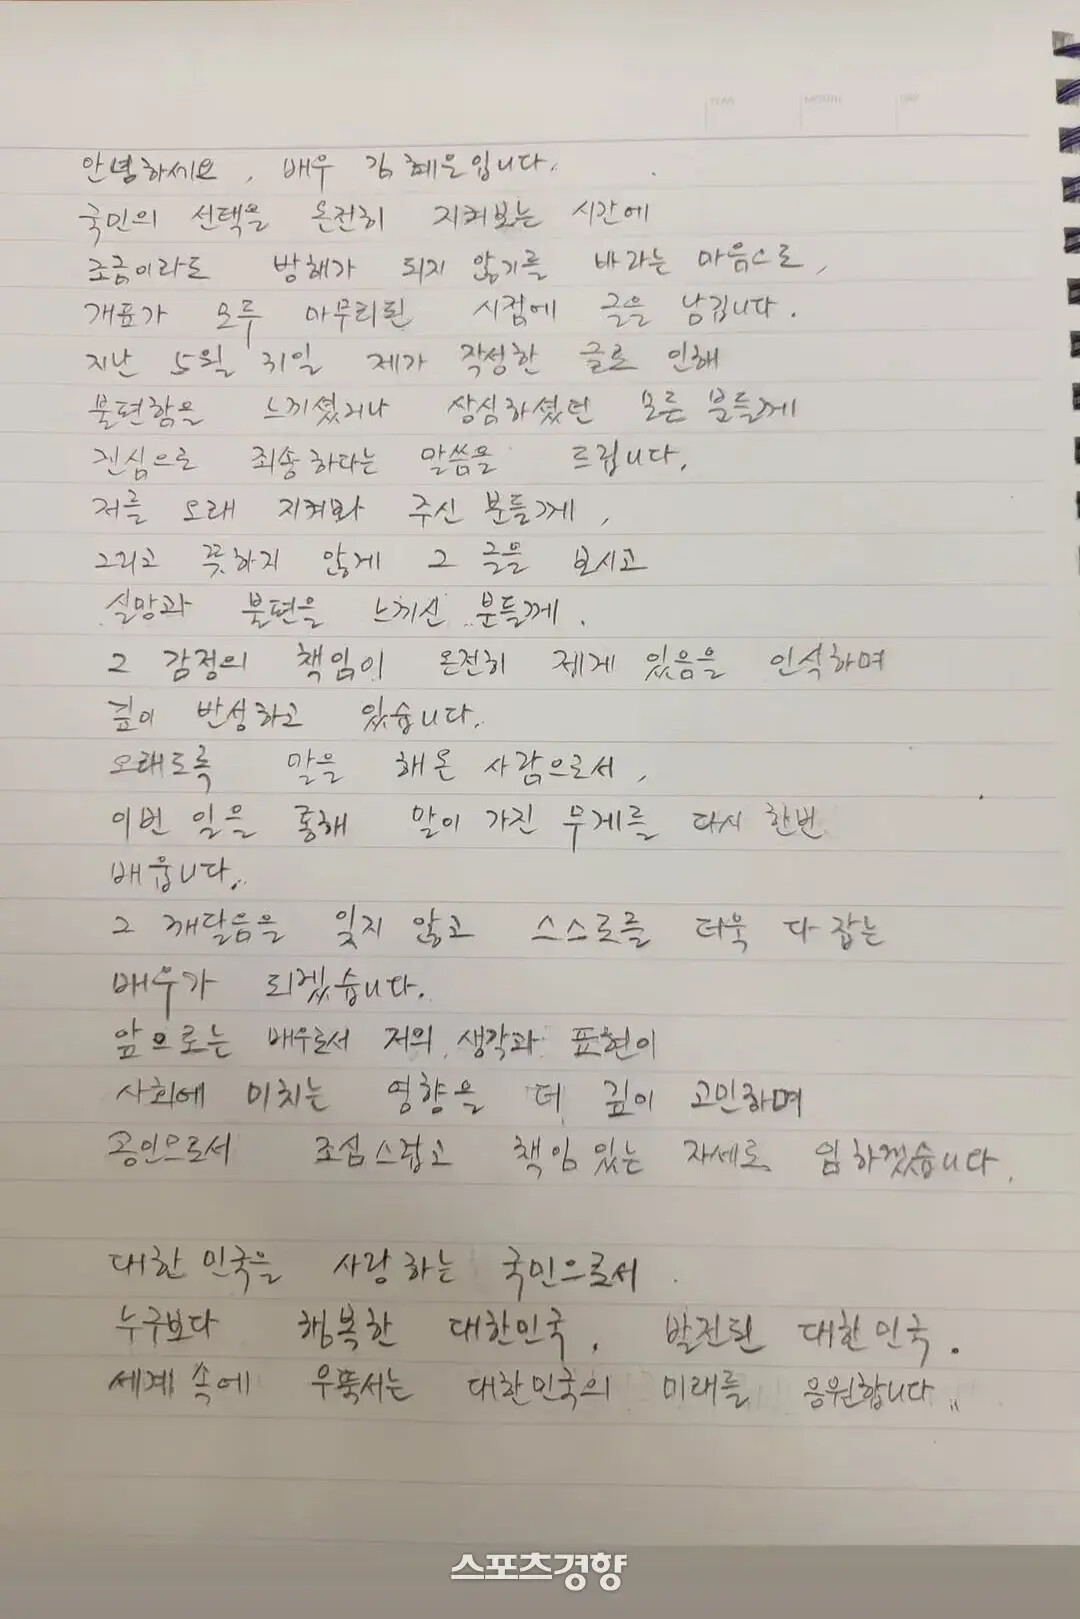 YEAR MONTH DAY
안녕하세요, 배우 김혜은입니다.
국민의 선택을 온전히 지켜보는 시간에
조금이라도 방해가 되지 않기를 바라는 마음으로,
개표가 모두 마무리된 시점에 글을 남깁니다.
지난 5월 31일 제가 작성한 글로 인해
불편함을 느끼셨거나 상심하셨던 모든 분들께
진심으로 죄송하다는 말씀을 드립니다.
저를 오래 지켜봐 주신 분들께,
그리고 뜻하지 않게 그 글을 보시고
실망과 불편을 느끼신 분들께.
그 감정의 책임이 온전히 제게 있음을 인식하며
깊이 반성하고 있습니다.
오래도록 말을 해온 사람으로서,
이번 일을 통해 말이 가진 무게를 다시 한번
배웁니다.
그 깨달음을 잊지 않고 스스로를 더욱 다잡는
배우가 되겠습니다.
앞으로는 배우로서 저의 생각과 표현이
사회에 미치는 영향을 더 깊이 고민하며
공인으로서 조심스럽고 책임 있는 자세로 임하겠습니다.
대한민국을 사랑하는 국민으로서
누구보다 행복한 대한민국, 발전된 대한민국.
세계 속에 우뚝서는 대한민국의 미래를 응원합니다.
스포츠경향